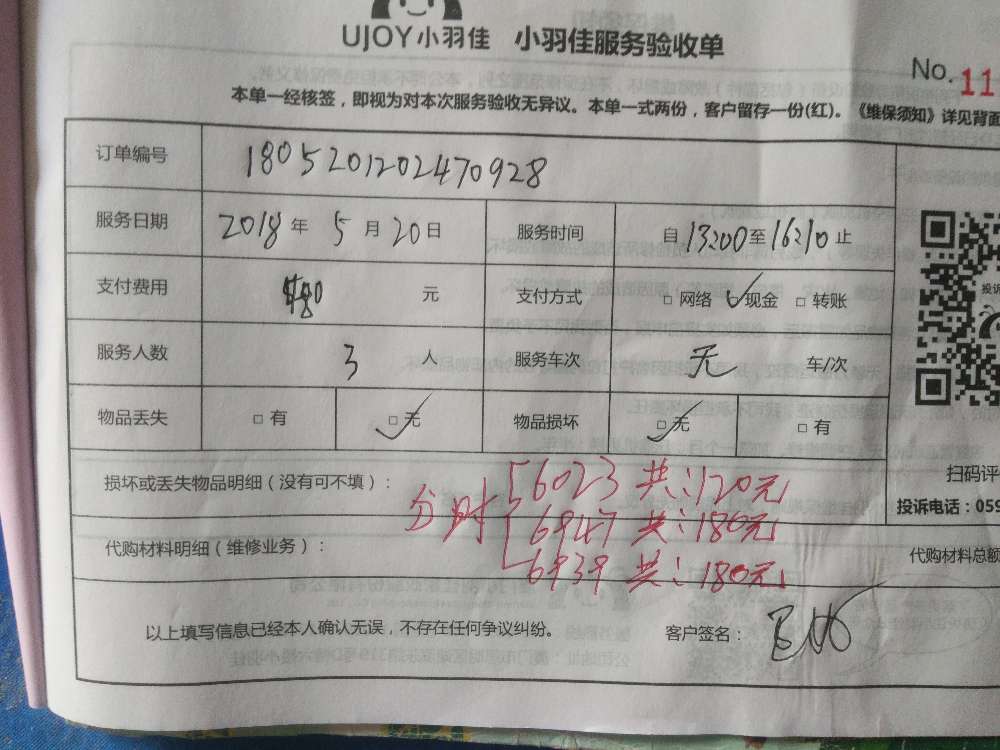 UJOY小羽佳 小羽佳服务验收单
No.11
本单一经核签，即视为对本次服务验收无异议。本单一式两份，客户留存一份(红)。《维保须知》详见背面
订单编号 180520120247​0928
服务日期 2018 年 5 月 20 日 服务时间 自 13:00 至 16:10 止
支付费用 480 元 支付方式 □ 网络 □ 现金 □ 转账
投诉
服务人数 3 人 服务车次 无 车/次
物品丢失 □ 有 □ 无 物品损坏 □ 无 □ 有
扫码评
损坏或丢失物品明细（没有可不填）：
投诉电话：059
分时 56023 共：120元
6947 共：180元
6939 共：180元
代购材料明细（维修业务）：
代购材料总额
以上填写信息已经本人确认无误，不存在任何争议纠纷。 客户签名：